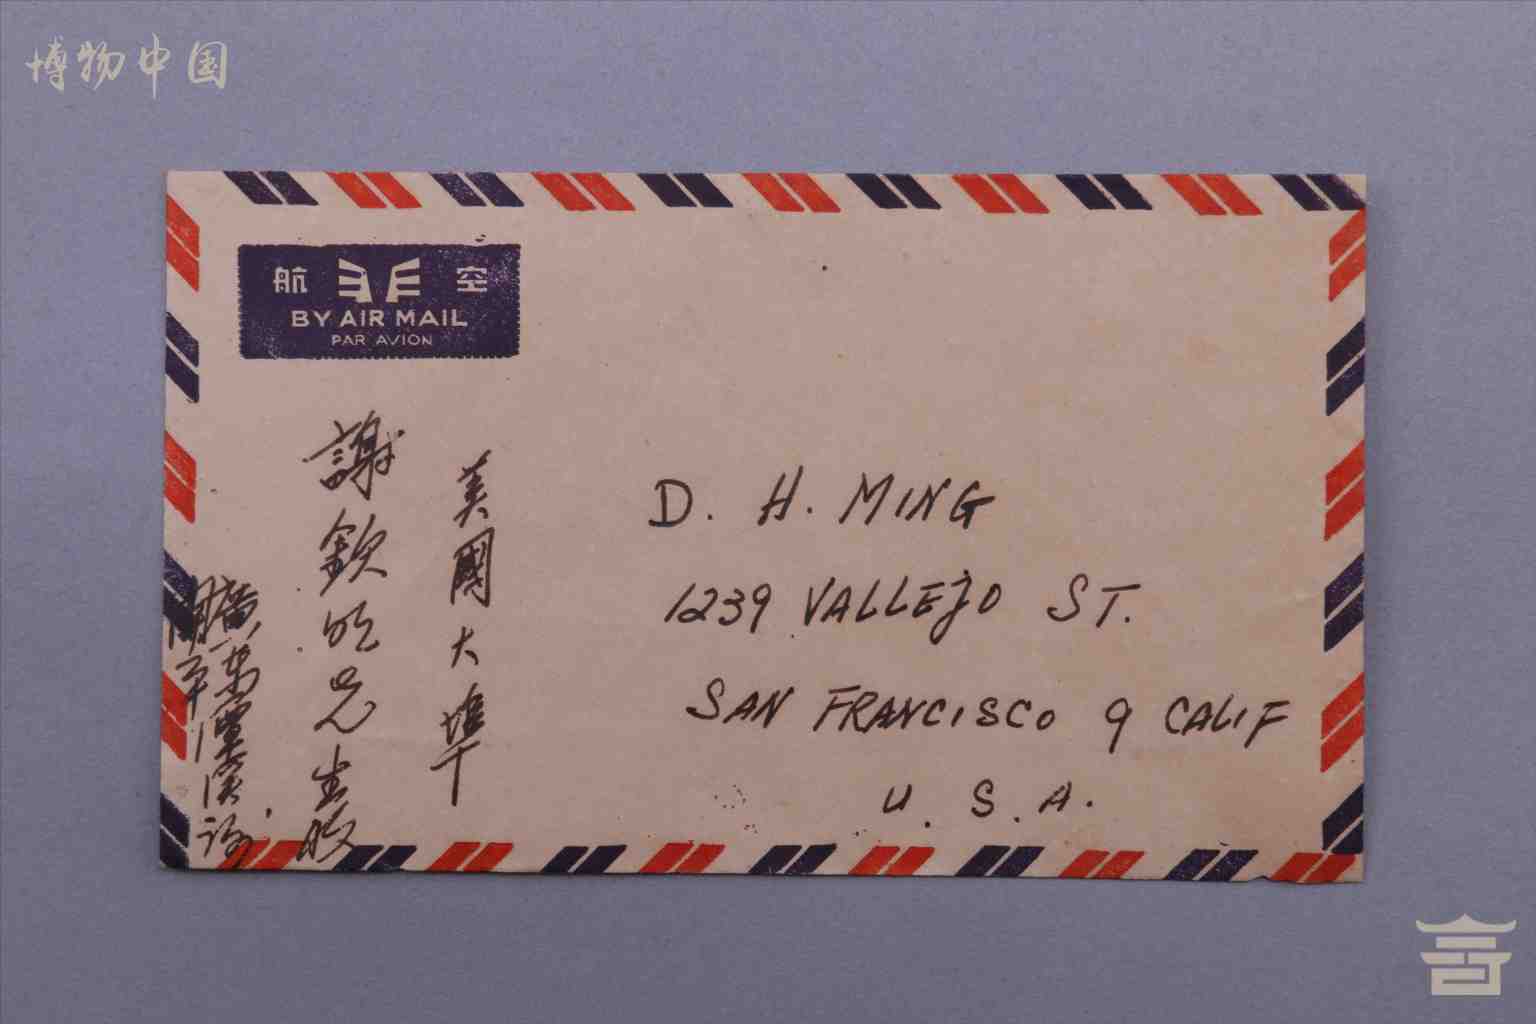 博物中国
航 空
BY AIR MAIL
PAR AVION
D. H. MING
1239 VALLEJO ST.
SAN FRANCISCO 9 CALIF
U. S. A.
美國大埠
謝欽明先生收
廣東
開平潭溪謝